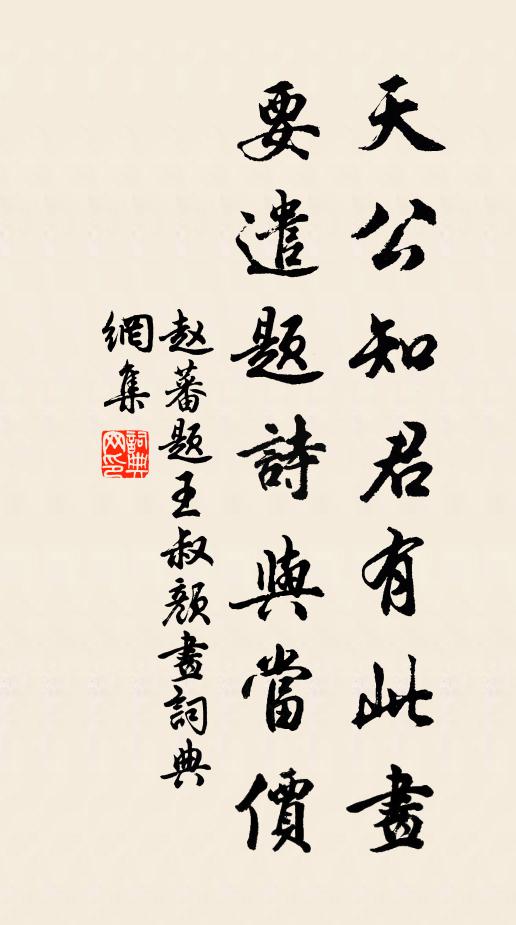 天公知君有此畫
要遣題詩與當價
赵蕃題王叔顏畫詞典
網集
詞典網印